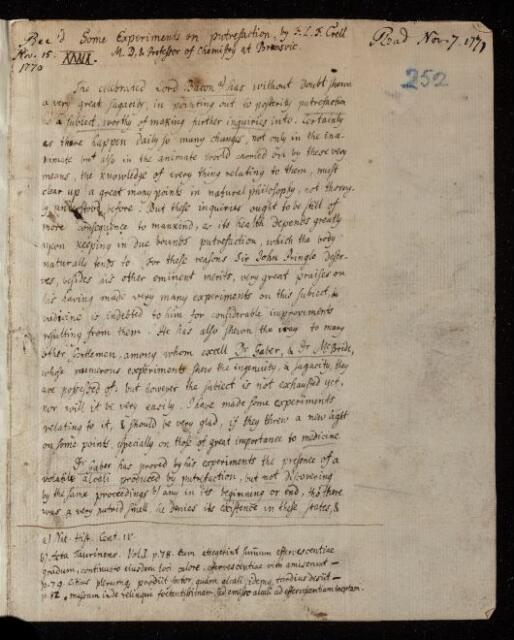 Rec'd Some Experiments on putrefaction, by F. L. F. Crell Read Nov. 7. 1771
Nov. 15. XXXIX. M. D. & Professor of Chemistry at Brunsvic.
1770
252
The celebrated Lord Bacon a) has without doubt shewn
a very great sagacity, in pointing out to posterity putrefaction
as a subject, worthy of making further inquiries into. Certainly
as there happen daily so many changes, not only in the ina-
nimate but also in the animate world carried on by these very
means, the knowledge of every thing relating to them, must
clear up a great many points in natural philosophy, not thorou-
ly understood before. But these inquiries ought to be still of
more consequence to mankind, as its health depends greatly
upon keeping in due bounds putrefaction, which the body
naturally tends to. For these reasons Sir John Pringle deser-
ves, besides his other eminent merits, very great praises on
his having made very many experiments on this subject, &
medicine is indebted to him for considerable improvements
resulting from them. He has also shewn the way to many
other gentlemen, among whom excell Dr Gaber, & Dr McBride,
whose numerous experiments shew the ingenuity, & sagacity, they
are possessed of. but however the subject is not exhausted yet,
nor will it be very easily. I have made some experiments
relating to it, & should be very glad, if they threw a new light
on some points, especially on those of great importance to medicine
Dr Gaber has proved by his experiments the presence of a
volatile alcali produced by putrefaction, but not discovering
by the same proceedings b) any in its beginning or end, tho' there
was a very putrid smell, he denies its existence in these states, &
a) Nat. Hist. Cent. IV
b) Acta Taurinens. Vol. I. p. 78. Eum attegetint summum effervescentiae
gradum, continuato ejusdem loci calore, effervescentiae vim amiserunt —
p. 79. Citius plerumq. prodiit foetor, quam alcali, idemq. tardius desiit —
p. 82. , massam inde relinqui foetentibus, sed emesso alcali ad effervescentiam ineptam.